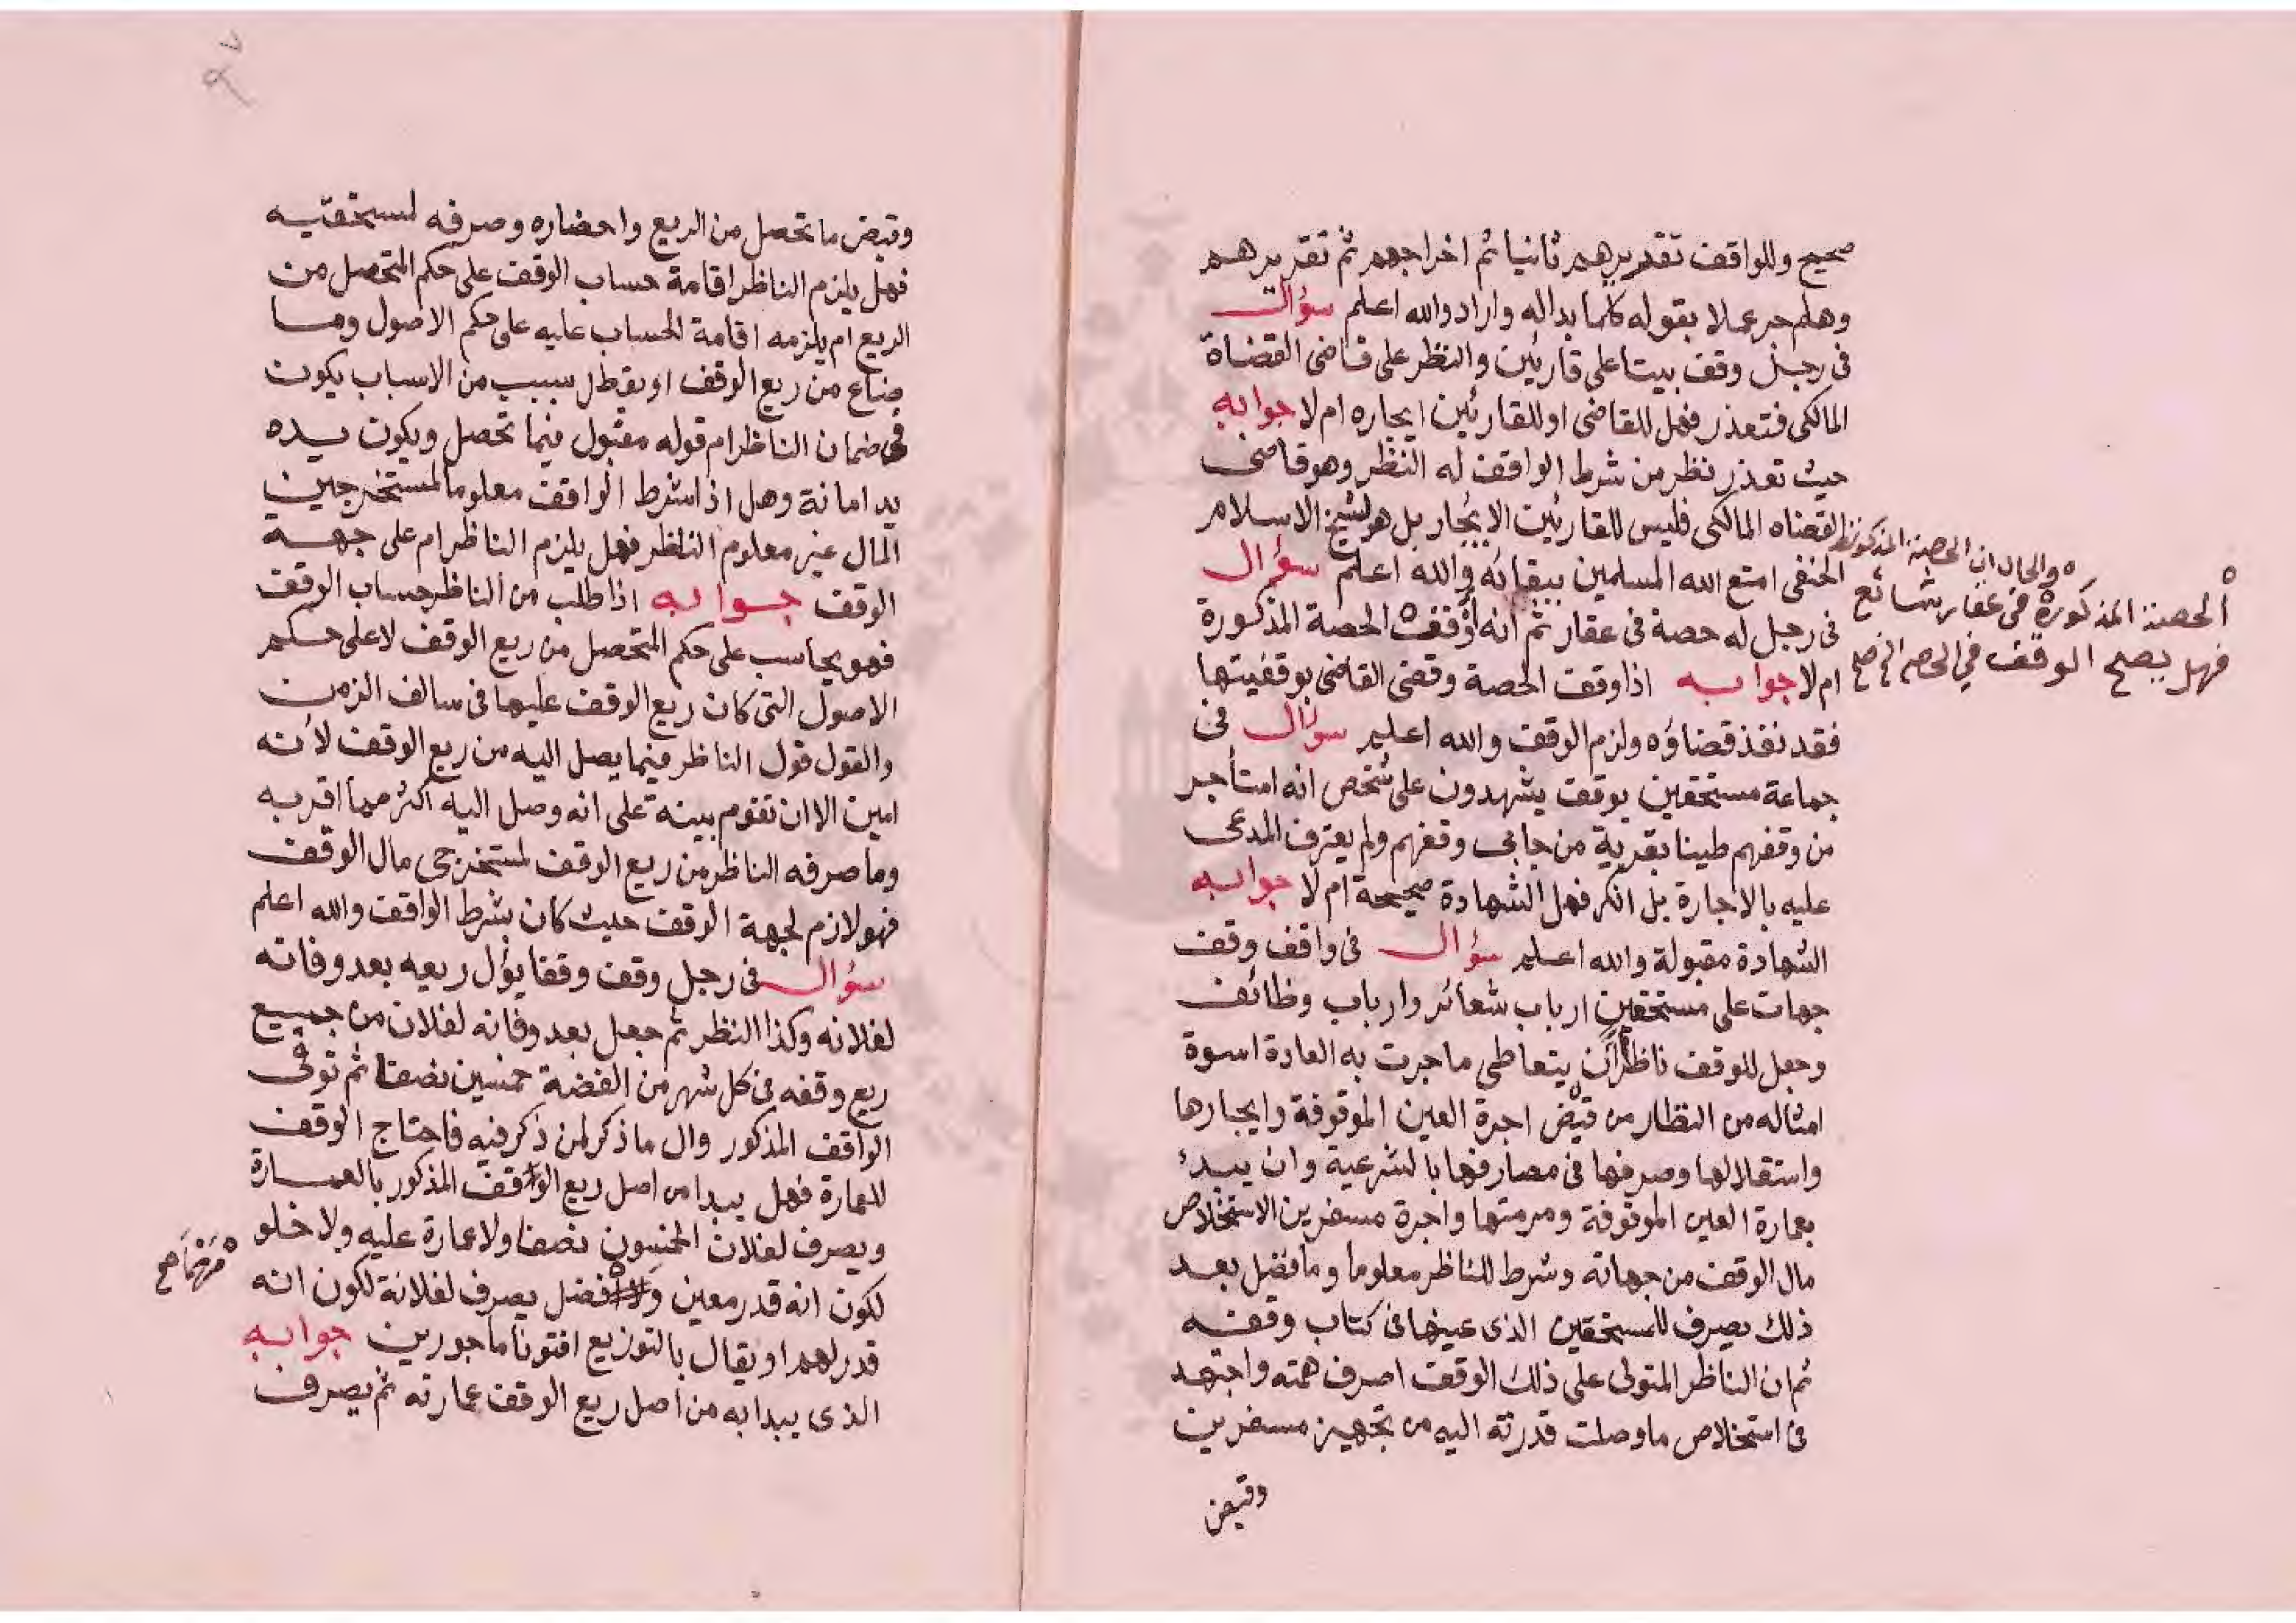 صحيح وللواقف تقديرهم ثانيا ثم اخراجهم ثم تقديرهم
وهلم جر عملا بقوله كلما بدا له واراد والله اعلم سؤال
فى رجل وقف بيتا على قارئين والنظر على قاضى القضاة
المالكى فتعذر فهل للقاضى او للقارئين ايجاره ام لا جوابه
حيث تعذر نظر من شرط الواقف له النظر وهو قاضى
القضاه المالكى فليس للقارئين الايجار بل هو لشيخ الاسلام
الحنفى امتع الله المسلمين ببقائه والله اعلم سؤال
فى رجل له حصة فى عقار ثم انه أوقف الحصة المذكورة
والحال ان الحصة المذكورة
الحصة المذكورة فى عقار شائع
فهل يصح الوقف في الحصه
ام لا جوابه اذا وقف الحصة وقضى القاضى بوقفيتها
فقد نفذ قضاؤه ولزم الوقف والله اعلم سؤال فى
جماعة مستحقين بوقف يشهدون على شخص انه استأجر
من وقفهم طينا بقرية من جابى وقفهم ولم يعترف المدعى
عليه بالاجارة بل انكر فهل الشهادة صحيحة ام لا جوابه
الشهادة مقبولة والله اعلم سؤال فى واقف وقف
جهات على مستحقين ارباب شعائر وارباب وظائف
وجعل للوقف ناظرا ان يتعاطى ما جرت به العادة اسوة
امثاله من النظار من قبض اجرة العين الموقوفة وايجارها
واستقلالها وصرفها فى مصارفها بالشرعية وان يبدئ
بعمارة العين الموقوفة ومرمتها واجرة مسفرين الاستخلاص
مال الوقف من جهاته وشرط للناظر معلوما وما فضل بعد
ذلك يصرف للمستحقين الذى عينها فى كتاب وقفه
ثم ان الناظر المتولى على ذلك الوقف اصرف همته واجتهد
فى استخلاص ما وصلت قدرته اليه من تجهيز مسفرين
وقبض
٩٧
وقبض ما تحصل من الريع واحضاره وصرفه لمستحقيه
فهل يلزم الناظر اقامة حساب الوقف على حكم المتحصل من
الريع ام يلزمه اقامة الحساب عليه على حكم الاصول وما
ضاع من ريع الوقف او بقطل سبب من الاسباب يكون
فى ضمان الناظر ام قوله مقبول فيما تحصل ويكون يده
يد امانة وهل اذا شرط الواقف معلوما لمستخرجين
المال غير معلوم الناظر فهل يلزم الناظر ام على جهة
الوقف جوابه اذا طلب من الناظر حساب الوقف
فهو يحاسب على حكم المتحصل من ريع الوقف لا على حكم
الاصول التى كان ريع الوقف عليها فى سالف الزمن
والقول قول الناظر فيما يصل اليه من ريع الوقف لأنه
امين الا ان تقوم بينة على انه وصل اليه اكثر مما اقر به
وما صرفه الناظر من ريع الوقف لمستخرجى مال الوقف
فهو لازم لجهة الوقف حيث كان بشرط الواقف والله اعلم
سؤال فى رجل وقف وقفا يؤل ريعه بعد وفاته
لفلانه وكذا النظر ثم جعل بعد وفاته لفلان من جميع
ريع وقفه فى كل شهر من الفضة خمسين نصفا ثم توفى
الواقف المذكور وال ما ذكر لمن ذكر فيه فاحتاج الوقف
للعمارة فهل يبدا من اصل ريع الوقف المذكور بالعمارة
ويصرف لفلان الخمسون نصفا ولا عمارة عليه ولا خلو
لكون انه قدر معين و فضل يصرف لفلانة لكون انه
مهما صح
قدر لهم او يقال بالتوزيع افتونا ماجورين جوابه
الذى يبدا به من اصل ريع الوقف عمارته ثم يصرف